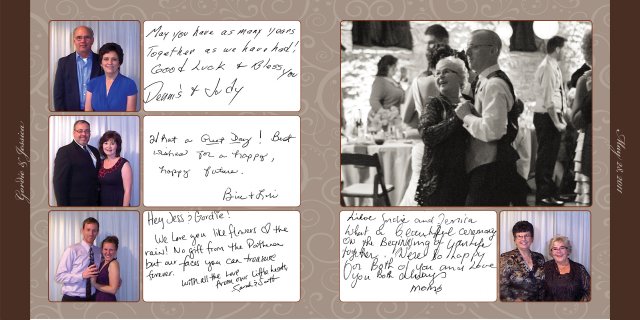 Gordie & Jessica
May you have as many years
Together as we have had!
Good Luck & Bless you
Dennis & Judy
What a Great Day! Best
wishes for a happy,
happy future.
Bill + Lori
Hey Jess & Gordie!
We love you like flowers <3 the
rain! No gift from the
but our faces you can treasure
forever.
with all the love
from our little hearts,
Sarah & Scott
May 28, 2011
and Jessica
What a beautiful ceremony
on the beginning of your life
together. Were so happy
for Both of you and Love
you Both always
moms